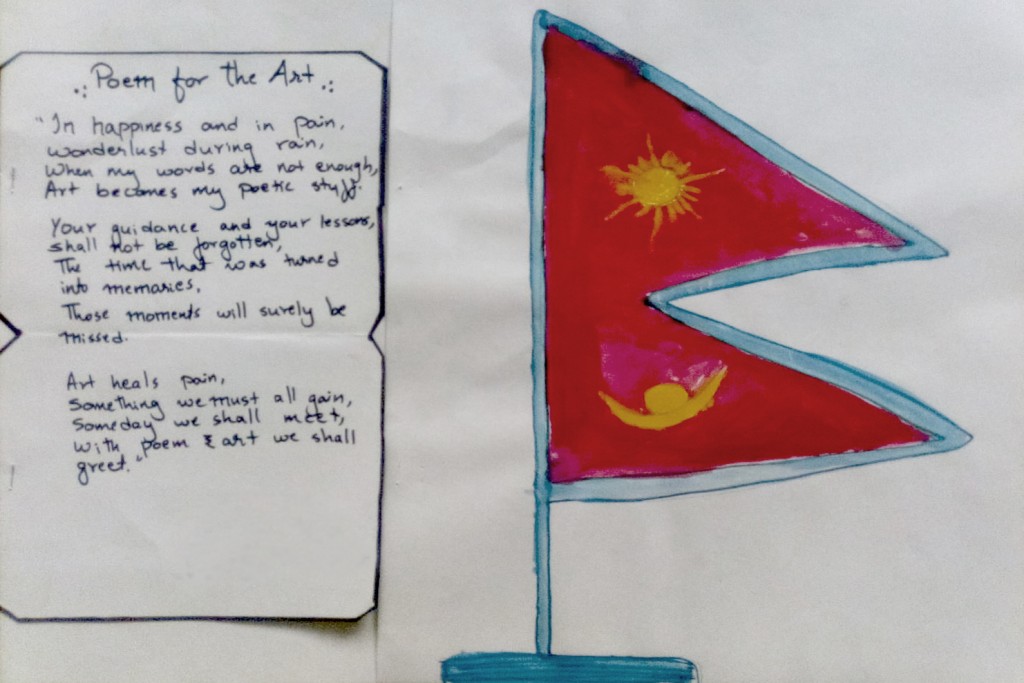 .: Poem for the Art .:
"In happiness and in pain,
wonderlust during rain,
When my words are not enough,
Art becomes my poetic stuff.
Your guidance and your lessons,
shall not be forgotten,
The time that was turned
into memories,
Those moments will surely be
missed.
Art heals pain,
Something we must all gain,
Someday we shall meet,
With poem & art we shall
greet."